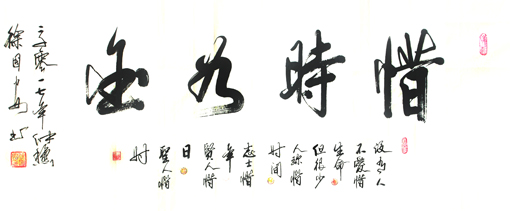 惜時如金
没有人
不愛惜
生命
但很少
人珍惜
时间
志士惜
年
賢人惜
日
聖人惜
时
二零一七年仲穐
徐国 书